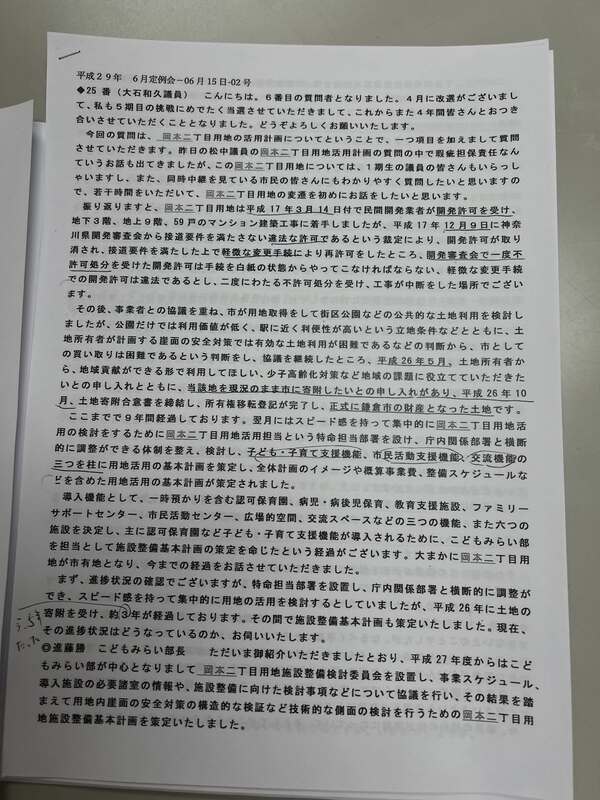 平成２９年　６月定例会－06月15日-02号
◆25 番（大石和久議員）　こんにちは。６番目の質問者となりました。４月に改選がございまし
て、私も５期目の挑戦にめでたく当選させていただきまして、これからまた４年間皆さんとおつき
合いさせていただくこととなりました。どうぞよろしくお願いいたします。
今回の質問は、岡本二丁目用地の活用計画についてということで、一つ項目を加えまして質問
させていただきます。昨日の松中議員の岡本二丁目用地活用計画の質問の中で瑕疵担保責任なん
ていうお話も出てきましたが、この岡本二丁目用地については、１期生の議員の皆さんもいらっし
ゃいますし、また、同時中継を見ている市民の皆さんにもわかりやすく質問したいと思いますの
で、若干時間をいただいて、岡本二丁目用地の変遷を初めにお話をしたいと思います。
振り返りますと、岡本二丁目用地は平成 17 年３月 14 日付で民間開発業者が開発許可を受け、
地下３階、地上９階、59 戸のマンション建築工事に着手しましたが、平成 17 年 12 月９日に神奈
川県開発審査会から接道要件を満たさない違法な許可であるという裁定により、開発許可が取り
消され、接道要件を満たした上で軽微な変更手続により再許可をしたところ、開発審査会で一度不
許可処分を受けた開発許可は手続を白紙の状態からやってこなければならない、軽微な変更手続
での開発許可は違法であるとし、二度にわたる不許可処分を受け、工事が中断をした場所でござい
ます。
その後、事業者との協議を重ね、市が用地取得をして街区公園などの公共的な土地利用を検討し
ましたが、公園だけでは利用価値が低く、駅に近く利便性が高いという立地条件などとともに、土
地所有者が計画する崖面の安全対策では有効な土地利用が困難であるなどの判断から、市として
の買い取りは困難であるという判断をし、協議を継続したところ、平成 26 年５月、土地所有者か
ら、地域貢献ができる形で利用してほしい、少子高齢化対策など地域の課題に役立てていただきた
いとの申し入れとともに、当該地を現況のまま市に寄附したいとの申し入れがあり、平成 26 年 10
月、土地寄附合意書を締結し、所有権移転登記が完了し、正式に鎌倉市の財産となった土地です。
ここまでで９年間経過しております。翌月にはスピード感を持って集中的に岡本二丁目用地活
用の検討をするために岡本二丁目用地活用担当という特命担当部署を設け、庁内関係部署と横断
的に調整ができる体制を整え、検討し、子ども・子育て支援機能、市民活動支援機能、交流機能の
三つを柱に用地活用の基本計画を策定し、全体計画のイメージや概算事業費、整備スケジュールな
どを含めた用地活用の基本計画が策定されました。
導入機能として、一時預かりを含む認可保育園、病児・病後児保育、教育支援施設、ファミリー
サポートセンター、市民活動センター、広場的空間、交流スペースなどの三つの機能、また六つの
施設を決定し、主に認可保育園など子ども・子育て支援機能が導入されるために、こどもみらい部
を担当として施設整備基本計画の策定を命じたという経過がございます。大まかに岡本二丁目用
地が市有地となり、今までの経過をお話させていただきました。
まず、進捗状況の確認でございますが、特命担当部署を設置し、庁内関係部署と横断的に調整が
でき、スピード感を持って集中的に用地の活用を検討するとしていましたが、平成 26 年に土地の
寄附を受け、約３年が経過しております。その間で施設整備基本計画も策定いたしました。現在、
その進捗状況はどうなっているのか、お伺いいたします。
◎進藤勝　こどもみらい部長　　ただいま御紹介いただきましたとおり、平成 27 年度からはこど
もみらい部が中心となりまして　岡本二丁目用地施設整備検討委員会を設置し、事業スケジュール、
導入施設の必要諸室の情報や、施設整備に向けた検討事項などについて協議を行い、その結果を踏
まえて用地内崖面の安全対策の構造的な検証など技術的な側面の検討を行うための岡本二丁目用
地施設整備基本計画を策定いたしました。